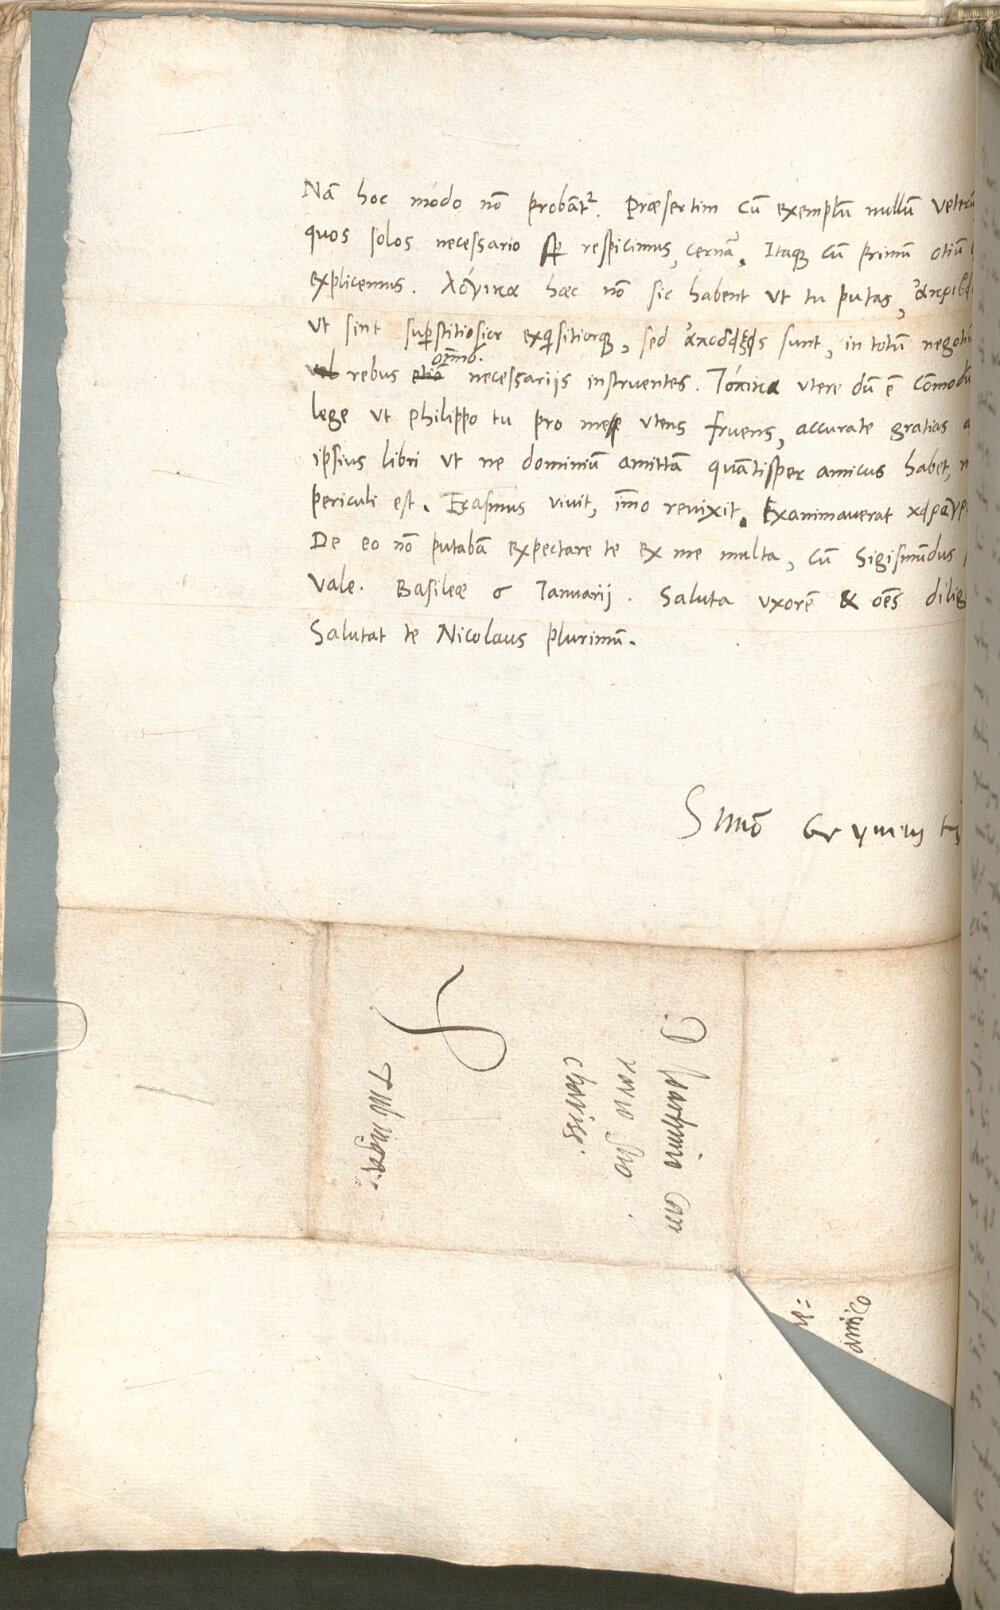 Nā hoc módo nō probāt². Præsertim cū exemplū nullū veterū
quos solos necessario sp respicimus, cernā. Itaqȝ cū primū otiū
explicemus. λόγικα hæc nō sic habent vt tu putas,
vt sint superstitiosior exqsitiorqȝ, sed sunt, in totū negotiū
oīno.
rebus etiā necessarijs instruentes. Τόπικα vtere dū ē cōmodū
lege vt philippo tu pro meque vtens fruens, accurate gratias
ipsius libri vt ne dominiū amittā quātisper amicus habet,
periculi est. Erasmus viuit, īmo reuixit. Examinauerat
De eo nō putabā expectare te ex me multa, cū Sigismūdus
Vale. Basileæ 6 Ianuarij. Saluta vxorē & oēs dilig
Salutat te Nicolaus plurimū.
Simō Gryneus
D. Joachimo Cam
rario suo
chariss.
Tubingæ.
re:
amico